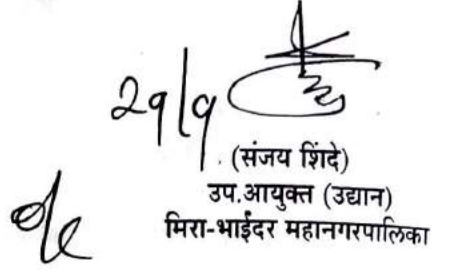 २१/१
(संजय शिंदे)
उप.आयुक्त (उद्यान)
मिरा-भाईंदर महानगरपालिका